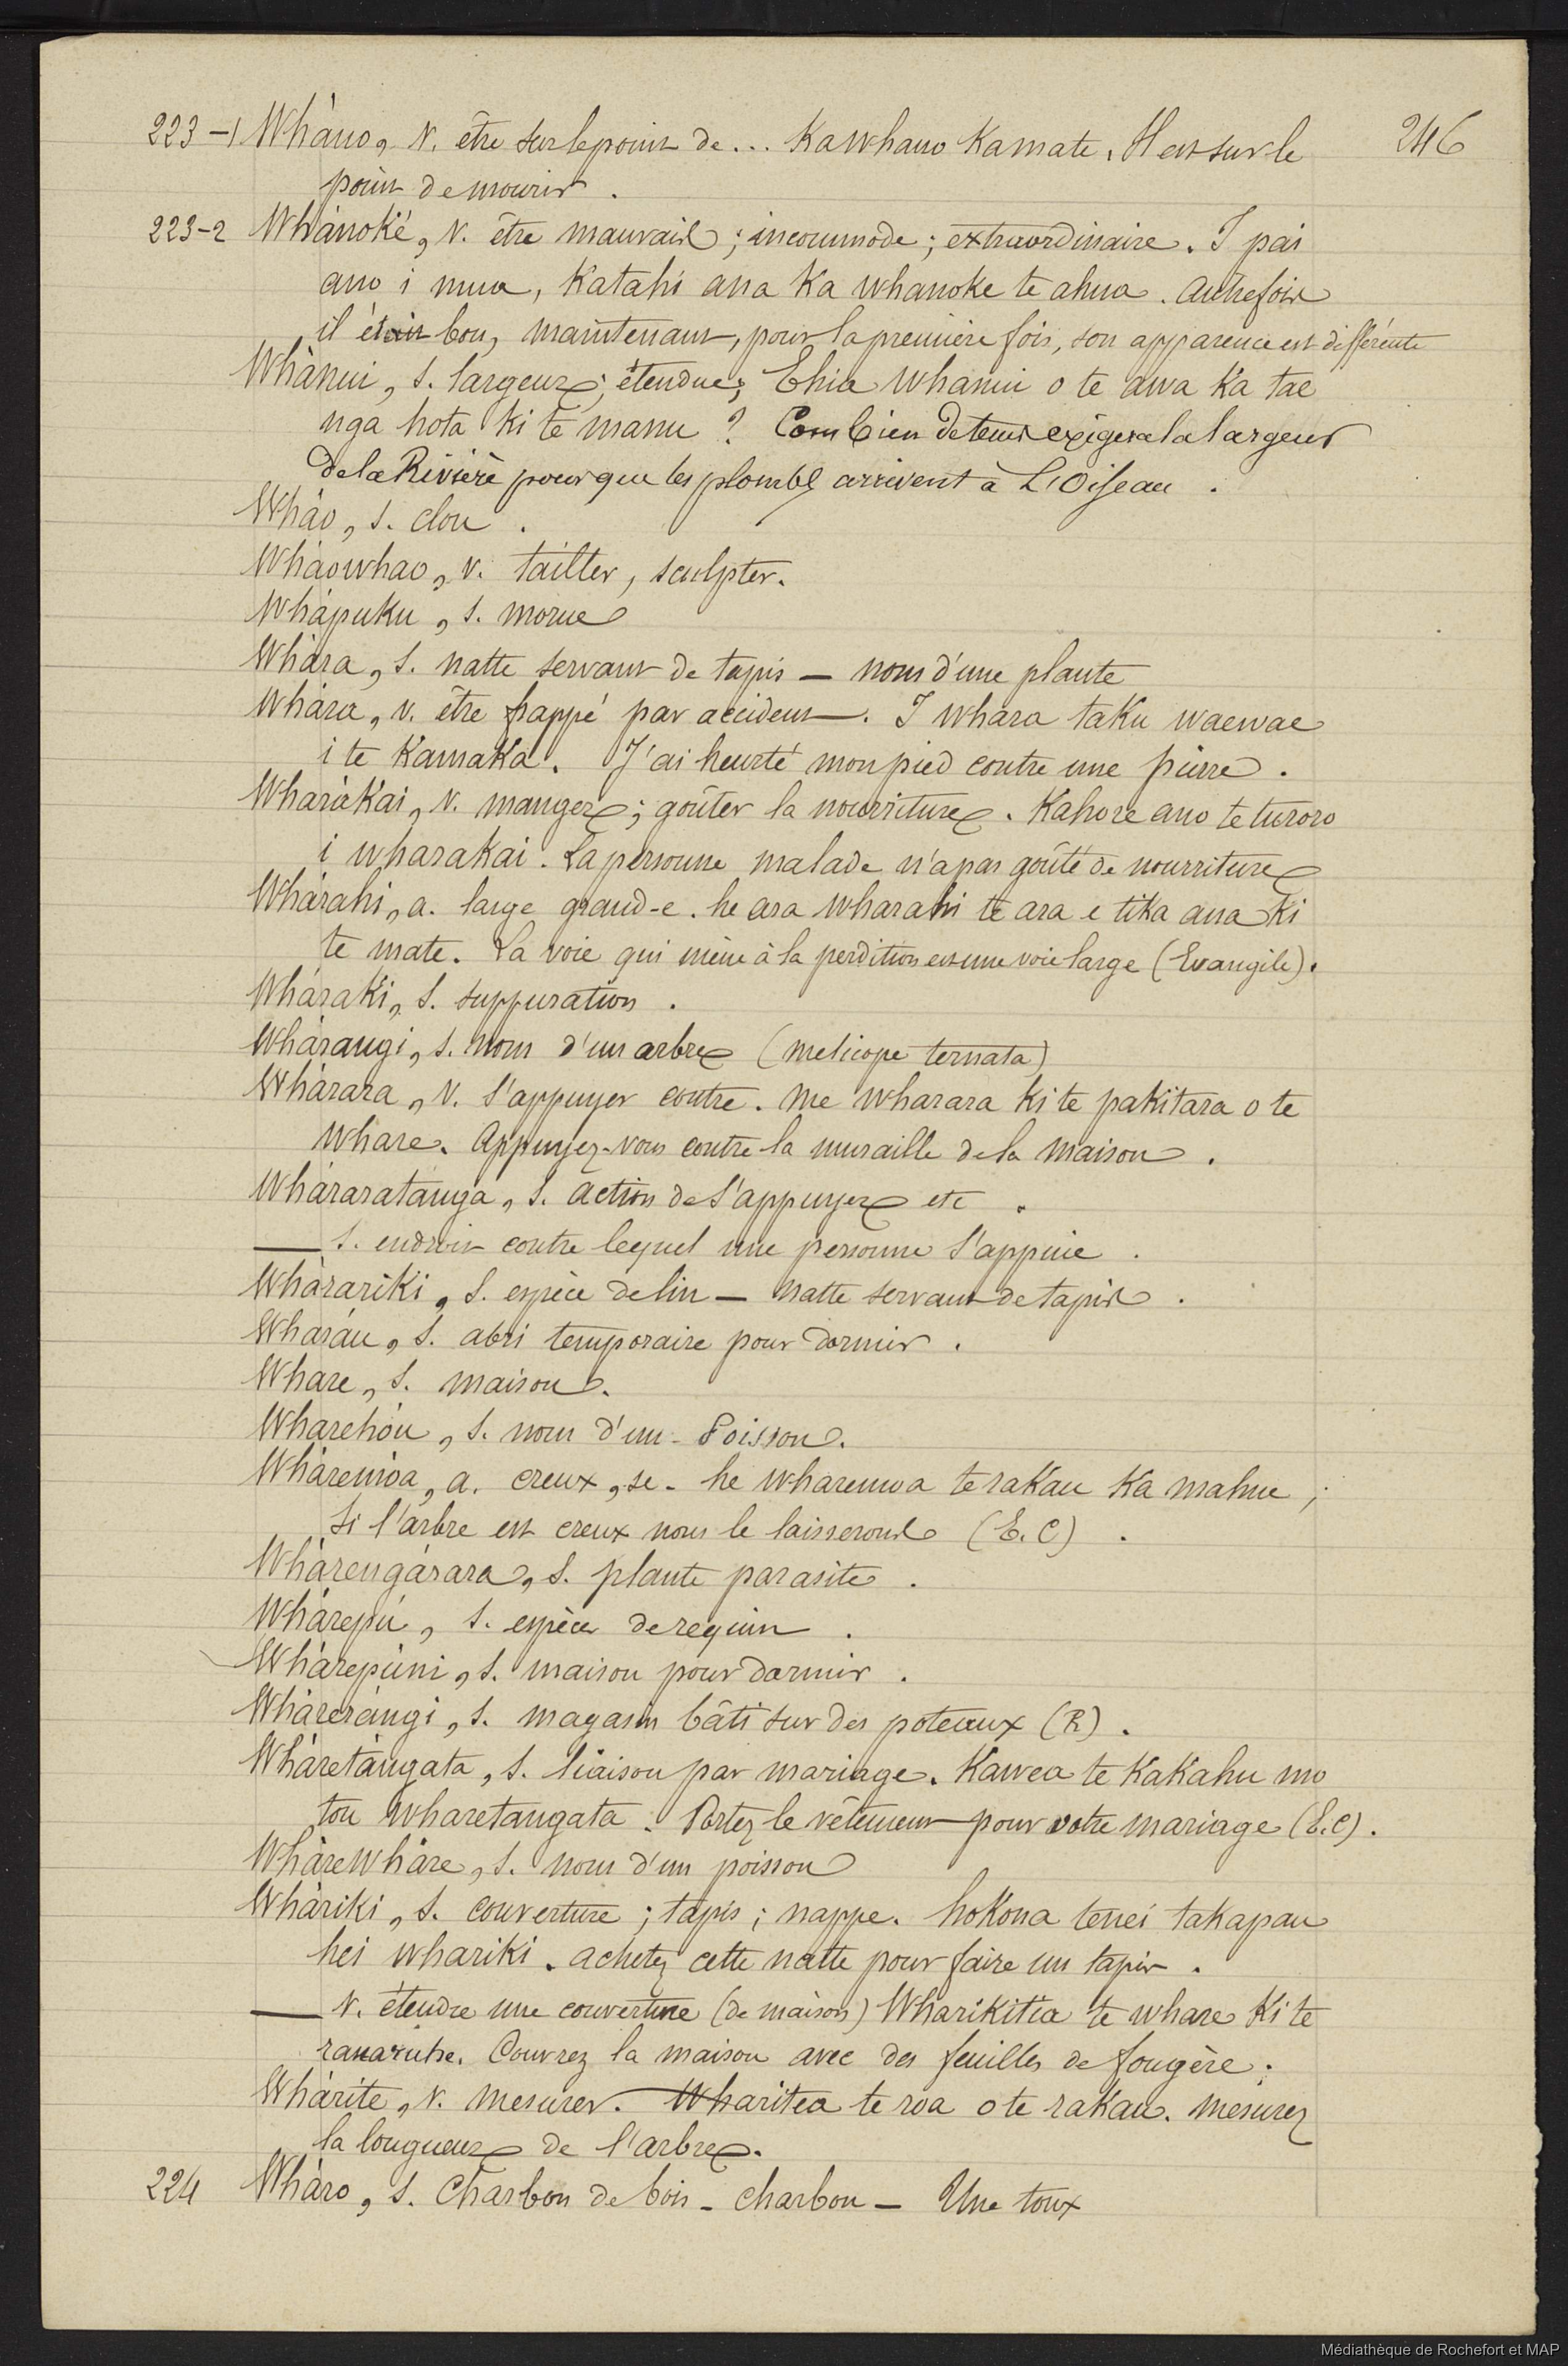 246
223-1 Whàno, v. être sur le point de... Ka whano Ka mate. Il est sur le
point de mourir.
223-2 Whànoké, v. être mauvais; incommode; extraordinaire. I pai
ano i mua, Katahi ana Ka whanoke te ahua. Autrefois
il était bon, maintenant, pour la première fois, son apparence est différente
Whànui, s. largeur; étendue; Ehia whanui o te awa Ka tae
nga hota Ki te manu? Combien de tems exigera la largeur
de la Rivière pour que les plombs arrivent à L'Oiseau.
Whào, s. clou.
Whàowhao, v. tailler, sculpter.
Whàpuku, s. morue
Whàra, s. natte servant de tapis — nom d'une plante
Whàra, v. être frappé par accident. I whara taku waewae
i te Kamaka. J'ai heurté mon pied contre une pierre.
Wharàkai, v. manger; goûter la nourriture. Kahore ano te turoro
i wharakai. La personne malade n'a pas goûté de nourriture
Whàrahi, a. large grand-e. he ara wharahi te ara e tika ana Ki
te mate. La voie qui mène à la perdition est une voie large (Evangile).
Whàraki, s. suppuration.
Whàrangi, s. nom d'un arbre (melicope ternata)
Whàrara, v. s'appuyer contre. me wharara Ki te pakitara o te
whare. Appuyez-vous contre la muraille de la maison.
Whàraratanga, s. action de s'appuyer etc.
— s. endroit contre lequel une personne s'appuie.
Whàrariki, s. espèce de lin — natte servant de tapis.
Wharàu, s. abri temporaire pour dormir.
Whare, s. maison.
Wharehòu, s. nom d'un Poisson.
Whàremòa, a. creux, se. he wharemoa te rakau Ka mahue;
Si l'arbre est creux nous le laisserons (E.C).
Whàrengàrara, s. plante parasite.
Whàrepù, s. espèce de requin.
Whàrepùni, s. maison pour dormir.
Whàreràngi, s. magasin bâti sur des poteaux (R).
Whàretàngata, s. liaison par mariage. Kawea te Kakahu mo
tou wharetangata. Portez le vêtement pour votre mariage (E.C).
Whàrewhàre, s. nom d'un poisson
Whàriki, s. couverture; tapis; nappe. hokona tenei takapau
hei whariki. achetez cette natte pour faire un tapis.
— v. étendre une couverture (de maison) Wharikitia te whare Ki te
rauaruhe. Couvrez la maison avec des feuilles de fougère.
Whàrite, v. mesurer. Wharitea te roa o te rakau. mesurez
la longueur de l'arbre.
224 Whàro, s. Charbon de bois - charbon — Une toux
Médiathèque de Rochefort et MAP